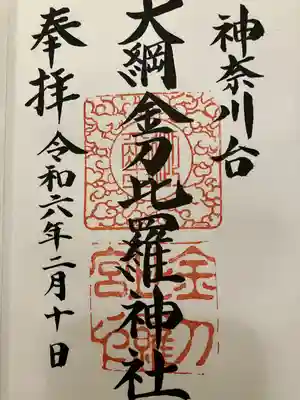 神奈川台
大綱金刀比羅神社
奉拝 令和六年二月十日